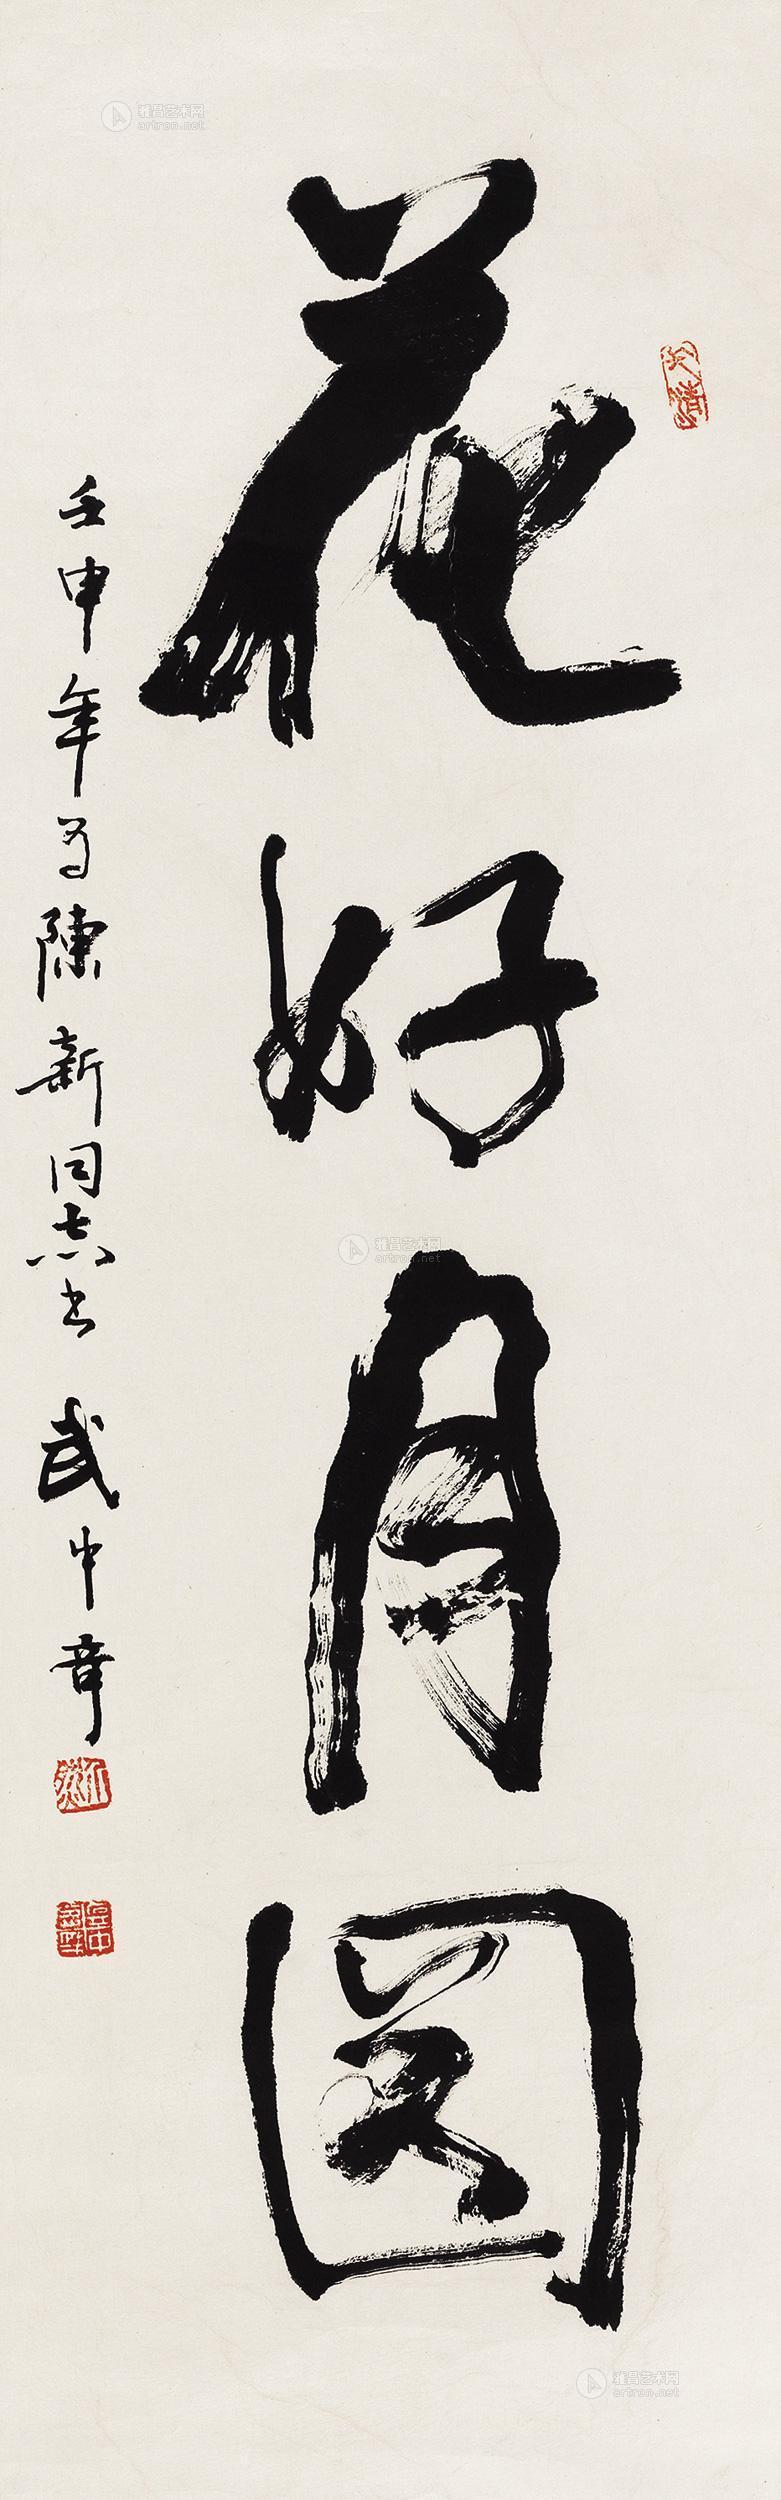 花好月圆
壬申年为陳新同志书 武中奇
雅昌艺术网
artron.net
雅昌艺术网
artron.net
雅昌艺术网
artron.net